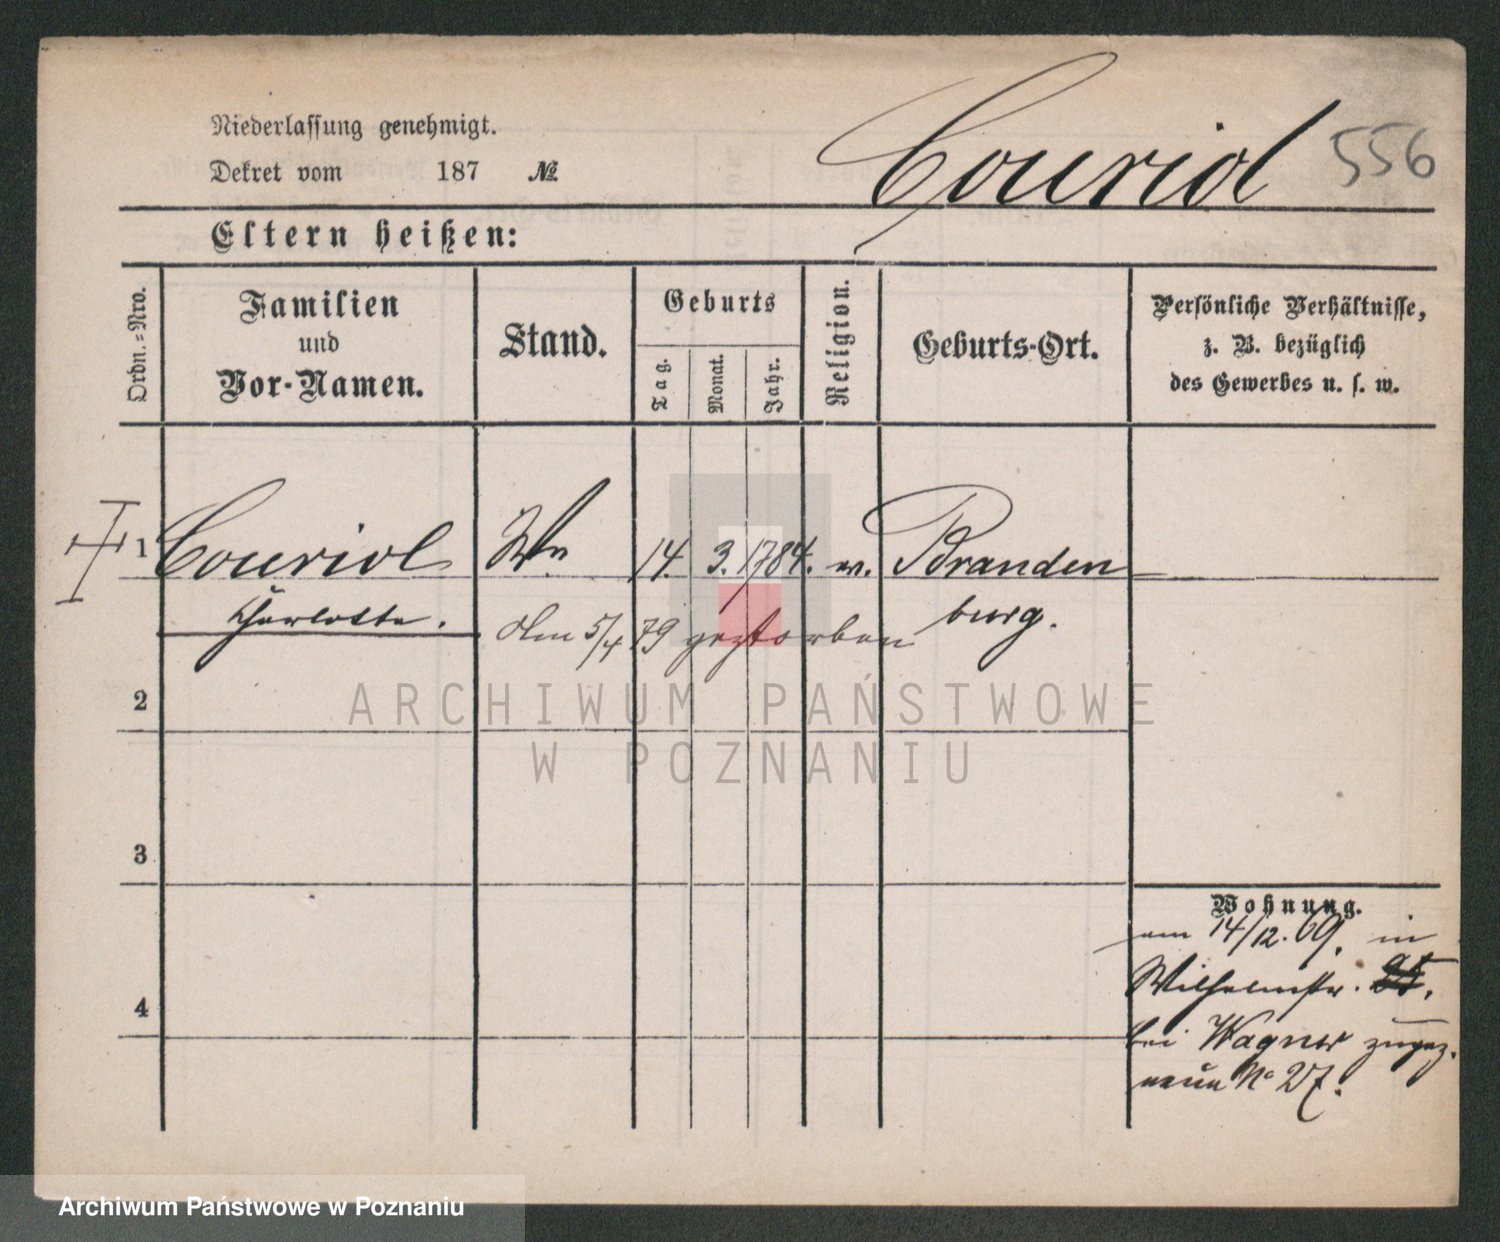 Couriol 556
Niederlassung genehmigt.
Dekret vom 187 №
Eltern heißen:
Ordn.=Nro.
Familien
und
Vor-Namen.
Stand.
Geburts
Tag.
Monat.
Jahr.
Religion.
Geburts-Ort.
Persönliche Verhältnisse,
z. B. bezüglich
des Gewerbes u. s. w.
1 Couriol Ww 14. 3. 1784. ev. Branden
Charlotte. burg.
Am 5/4 79 gestorben
2
3
4
Wohnung.
am 14/12. 69. in
Wilhelmstr.
bei Wagner zugez.
neue No 27.
ARCHIWUM PAŃSTWOWE
W POZNANIU
Archiwum Państwowe w Poznaniu